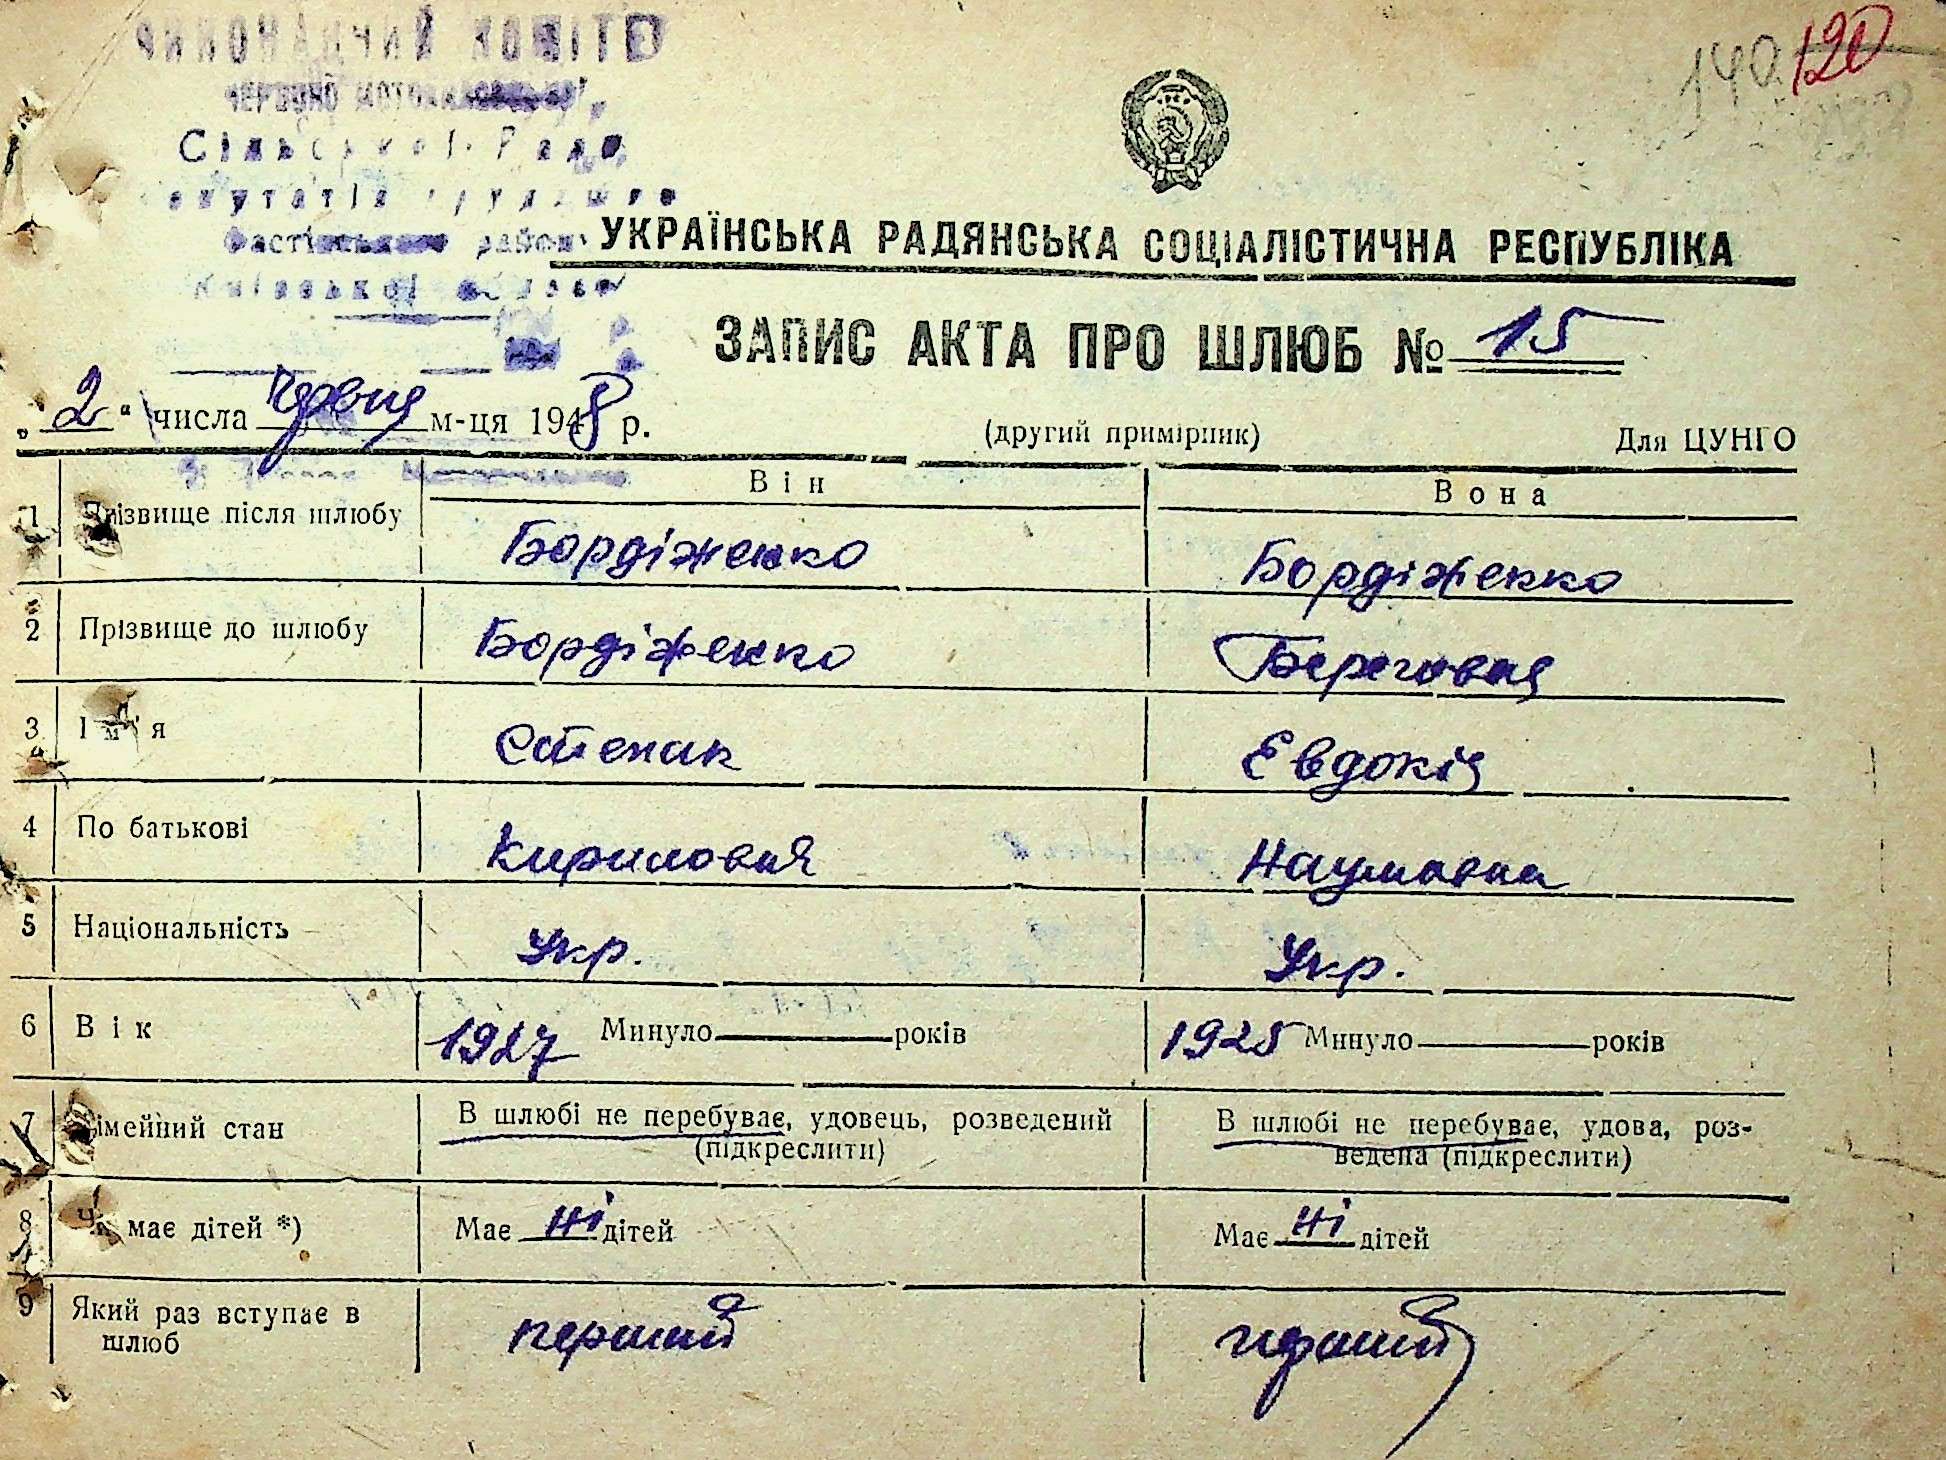 ВИКОНАВЧИЙ КОМІТЕТ
Сільської Ради
депутатів трудящих
Фастівського району
Київської області
140 120
УКРАЇНСЬКА РАДЯНСЬКА СОЦІАЛІСТИЧНА РЕСПУБЛІКА
ЗАПИС АКТА ПРО ШЛЮБ № 15
„2“ числа Червня м-ця 1948 р.
(другий примірник)
Для ЦУНГО
Він Вона
1 Прізвище після шлюбу Бордіженко Бордіженко
2 Прізвище до шлюбу Бордіженко Береговая
3 Ім'я Степан Евдокія
4 По батькові Кирилович Наумовна
5 Національність Укр. Укр.
6 Вік 1927 Минуло років 1925 Минуло років
7 Сімейний стан В шлюбі не перебуває, удовець, розведений В шлюбі не перебуває, удова, роз-
(підкреслити) ведена (підкреслити)
8 Чи має дітей *) Має ні дітей Має ні дітей
9 Який раз вступає в перший перший
шлюб